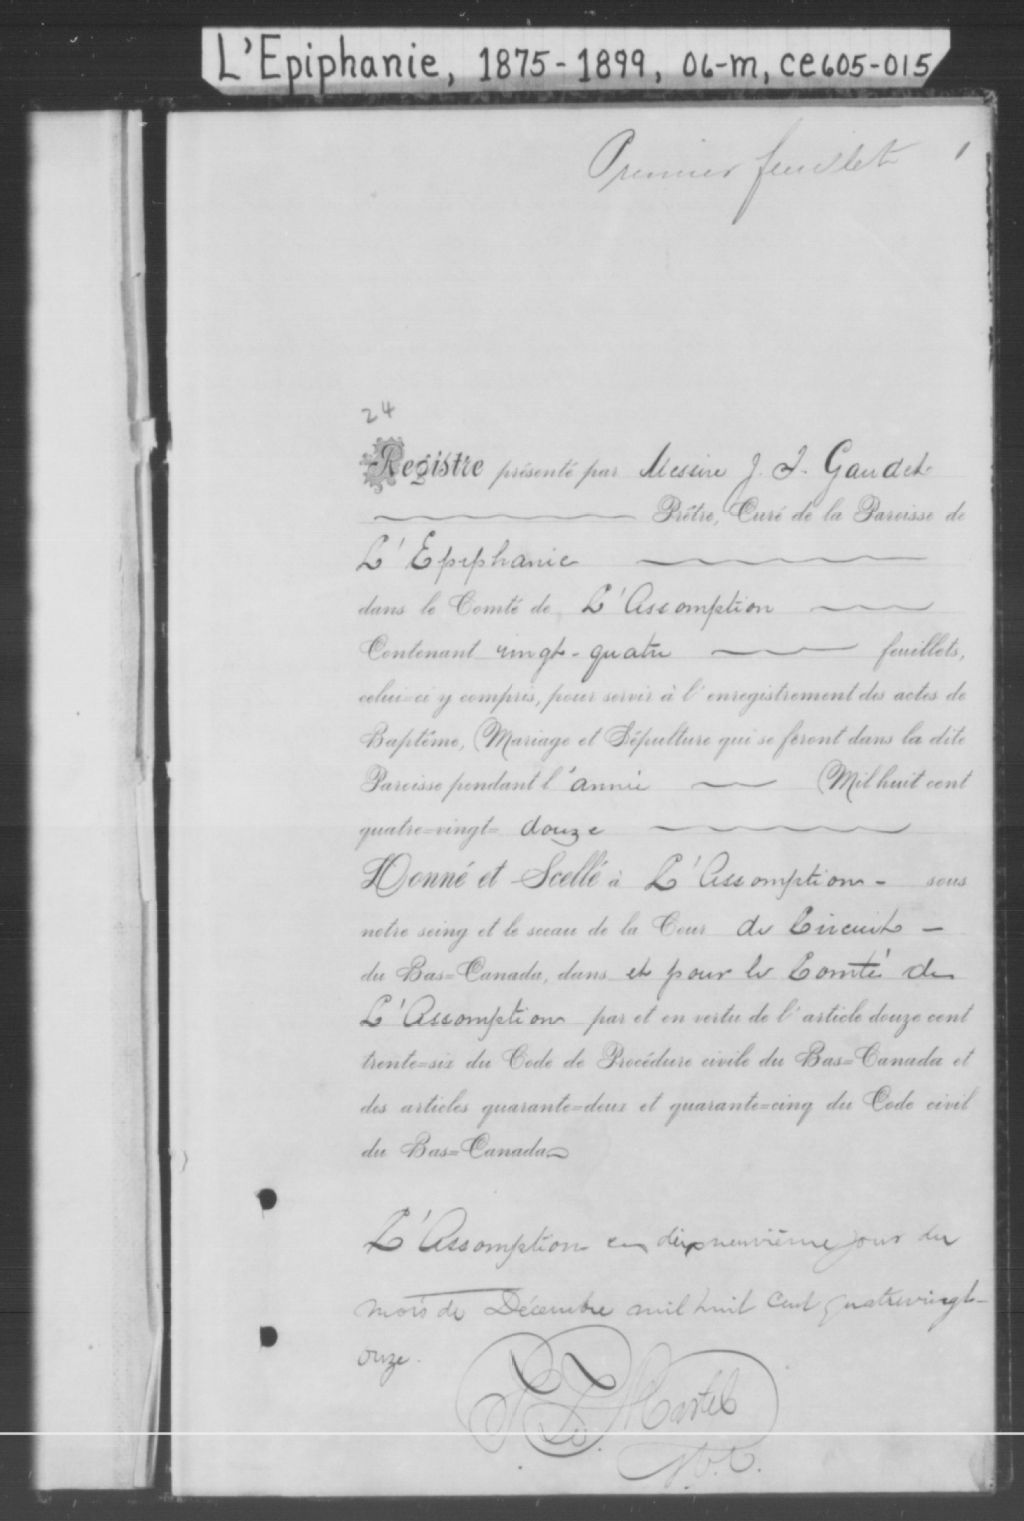 L'Epiphanie, 1875-1899, 06-m, ce605-015
Premier feuillet 1
24
Registre présenté par Messire J. I. Gaudet
Prêtre, Curé de la Paroisse de
L'Epiphanie
dans le Comté de L'Assomption
Contenant vingt-quatre feuillets,
celui-ci y compris, pour servir à l'enregistrement des actes de
Baptême, Mariage et Sépulture qui se feront dans la dite
Paroisse pendant l'année Mil huit cent
quatre=vingt= douze
Donné et Scellé à L'Assomption - sous
notre seing et le sceau de la Cour de Circuit -
du Bas=Canada, dans et pour le Comté de
L'Assomption par et en vertu de l'article douze cent
trente=six du Code de Procédure civile du Bas=Canada et
des articles quarante=deux et quarante=cinq du Code civil
du Bas=Canada
L'Assomption ce dixneuvième jour du
mois de Décembre mil huit cent quatrevingt-
onze.
Martel